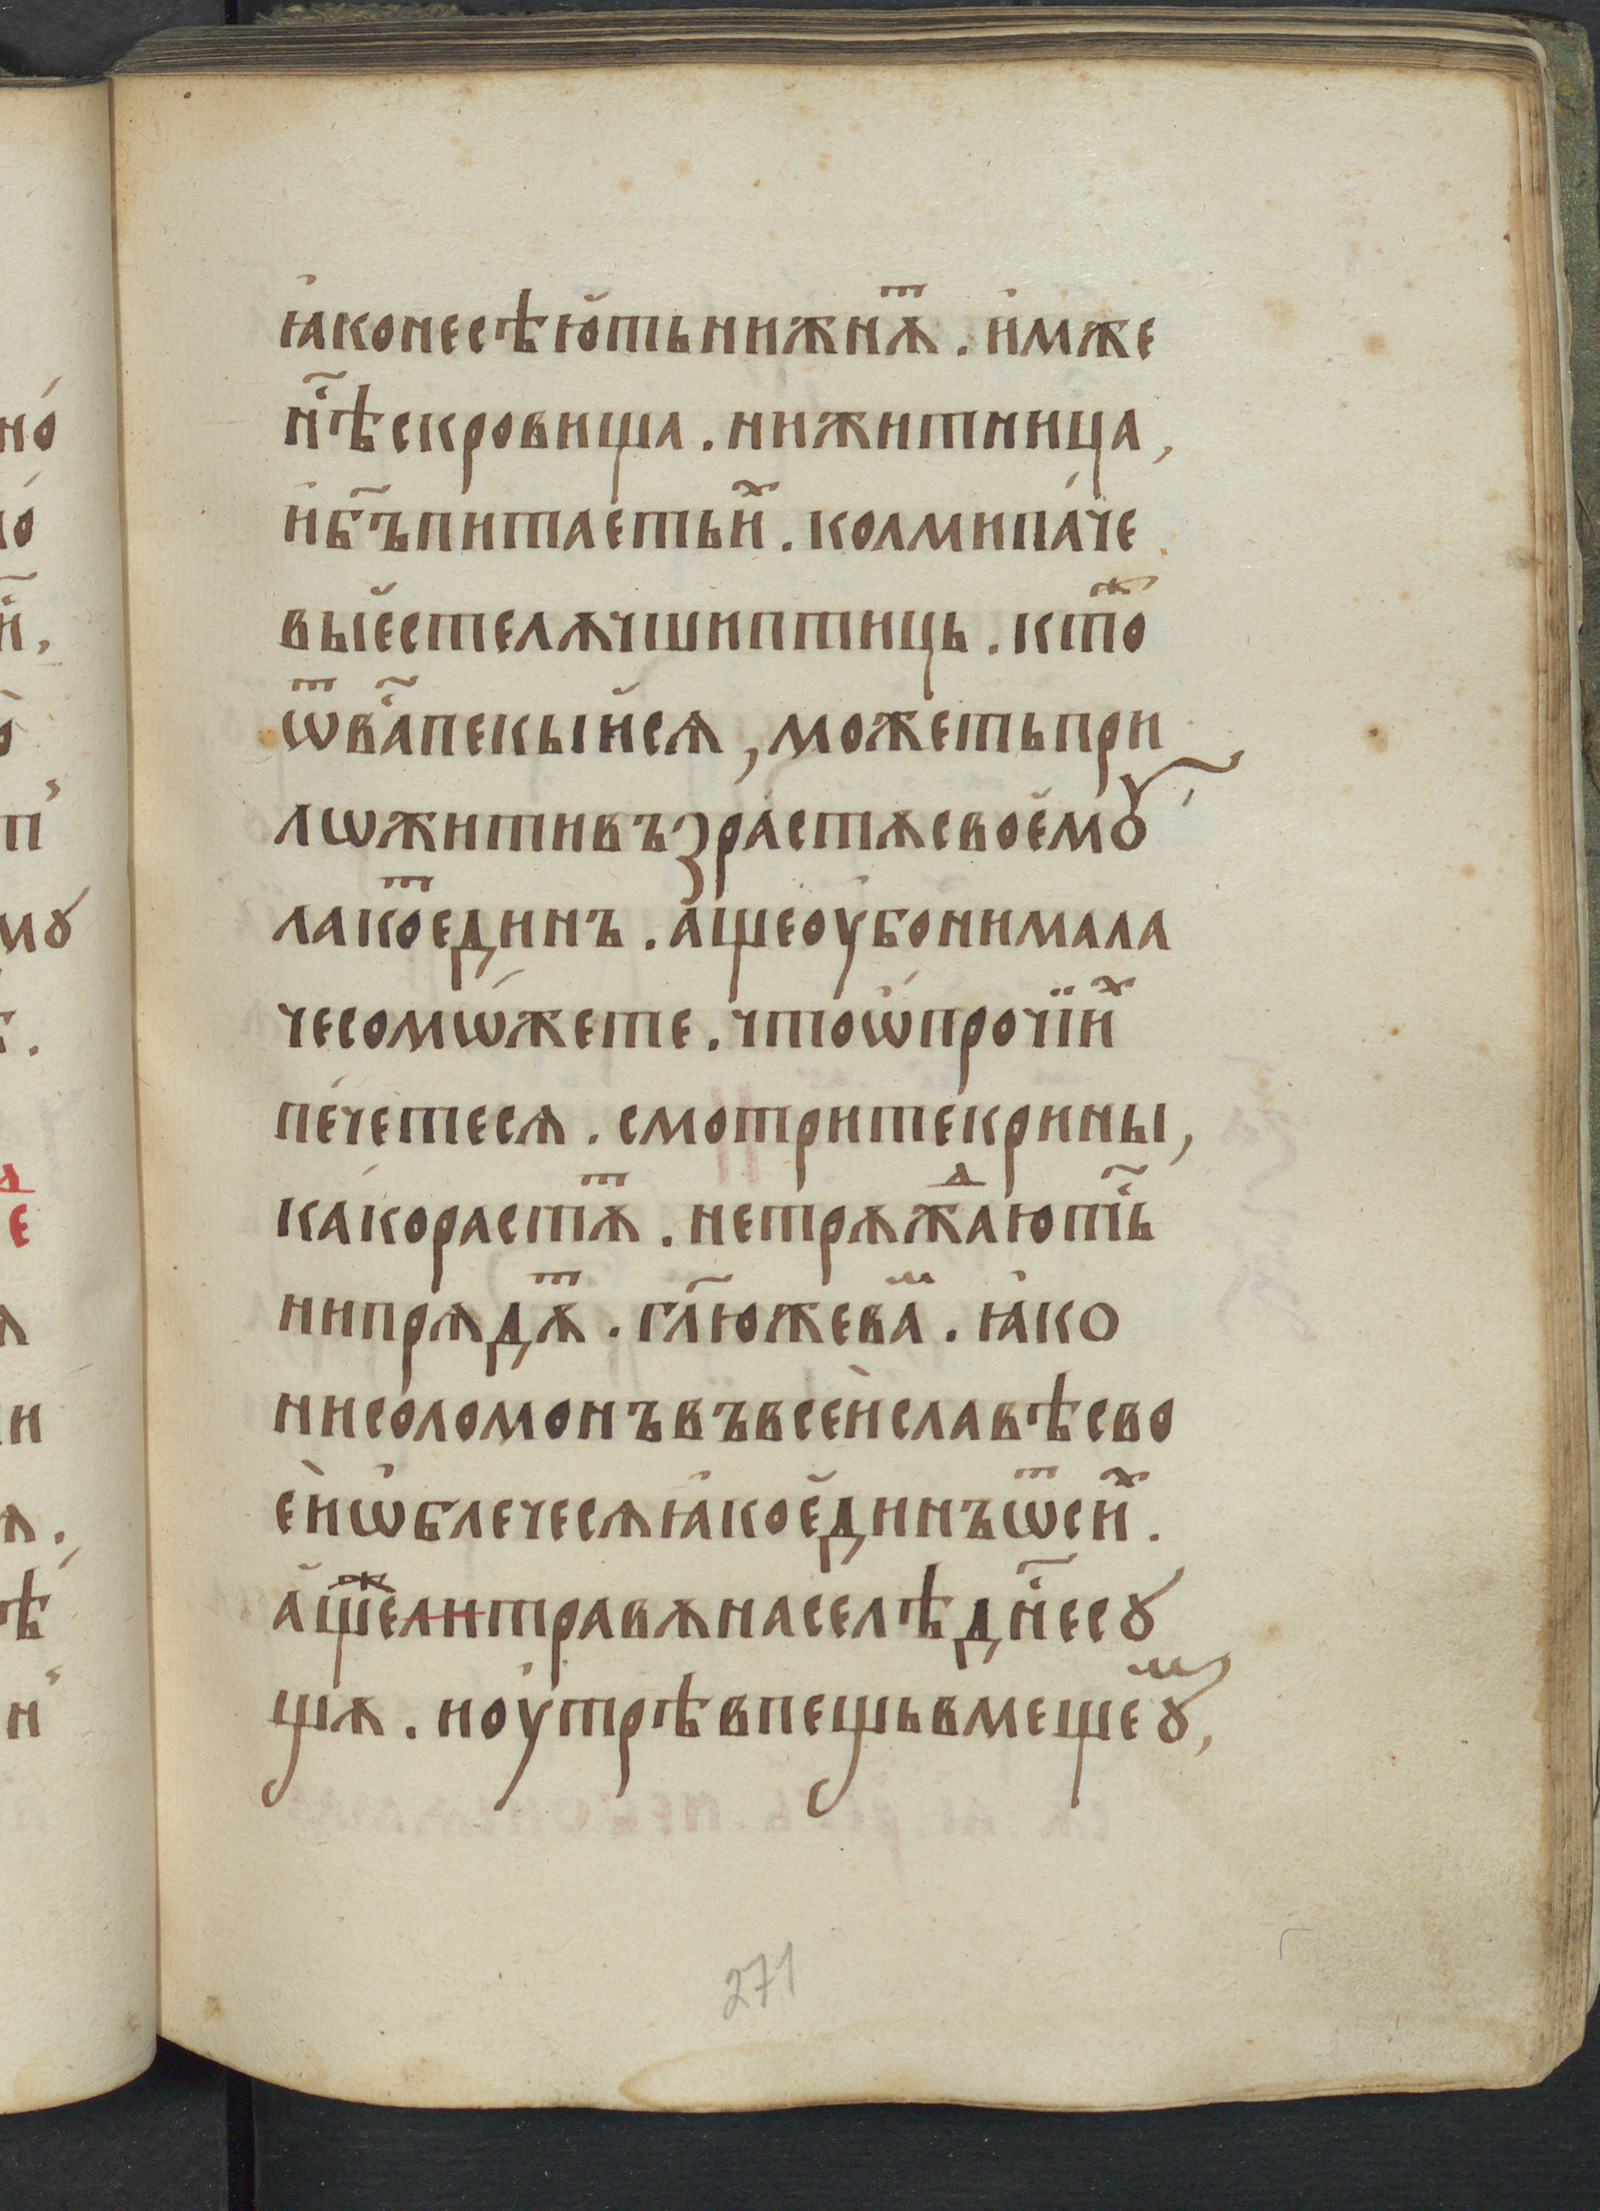 ꙗ҆конесѣю҆тьнижнѫⷮ. и҆мже
н҃ѣскровища. нижитница,
и҆б҃ъпитаетьи҆ⷯ. колмипа́че
вые҆стелѫчшиптиць. ктоⷤ
ѿва҃пекыи҆сѧ, можетьпри
лѡжитивъзрастѫсвоемꙋ̑
лакоⷮединъ. а҆щеоубонимала
чесомѡ́жете. чтоѡ҆прочїиⷯ
пе́четесѧ. смотритекрины,
ка́корастѫⷮ. нетрѫжⷣаютьⷭ҇
нипрѧдѫⷮ. гл҃южеваⷨ. ꙗ҆ко
нисоломонъвъвсеи҆славѣсво
еи҆ѡ҆блечесѧꙗ҆кое҆динъѿсиⷯ.
а҆щеⷤлитравѫнаселѣдн҃есꙋ
щѫ. ноу҆трѣвпещьвмещеꙋⷨ,
271
но
ло
и҃.
п
мꙋ
.
е
ѧ
и
ѧ.
ѣ
и